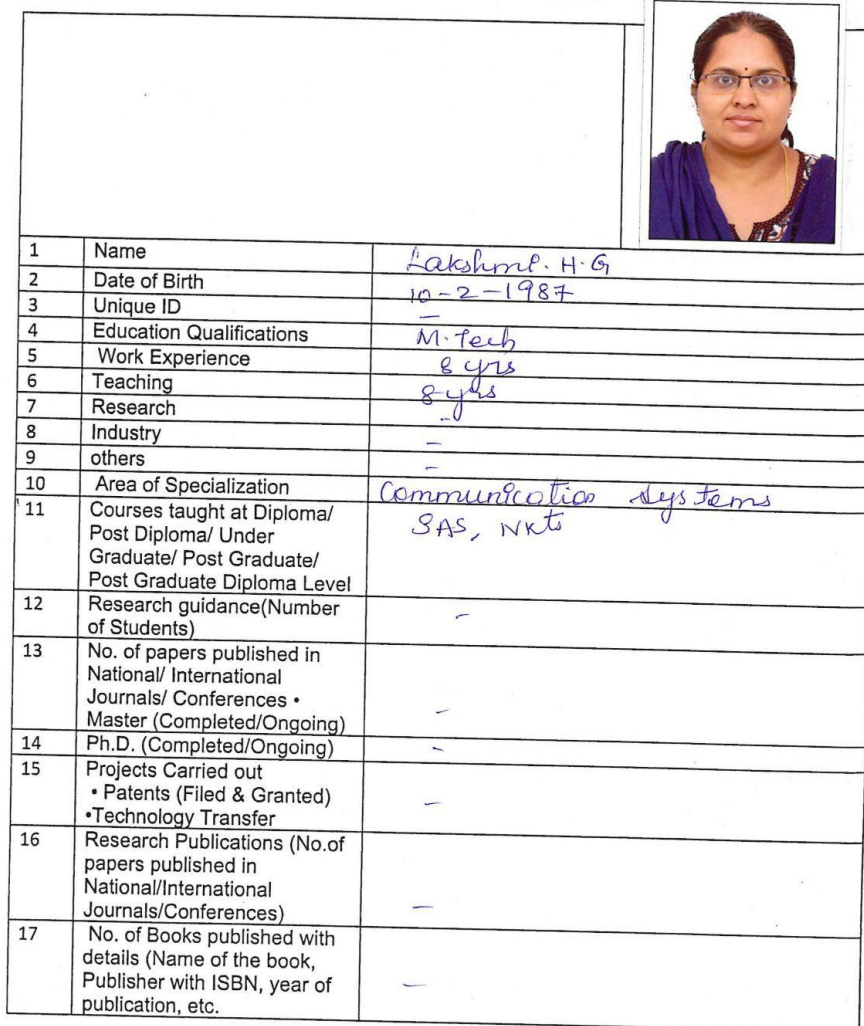 1 Name Lakshmi. H. G
2 Date of Birth 10-2-1987
3 Unique ID –
4 Education Qualifications M.Tech
5 Work Experience 8 yrs
6 Teaching 8 yrs
7 Research –
8 Industry –
9 others –
10 Area of Specialization Communication Systems
11 Courses taught at Diploma/ SAS, NKts
Post Diploma/ Under
Graduate/ Post Graduate/
Post Graduate Diploma Level
12 Research guidance(Number –
of Students)
13 No. of papers published in
National/ International
Journals/ Conferences •
Master (Completed/Ongoing) –
14 Ph.D. (Completed/Ongoing) –
15 Projects Carried out
• Patents (Filed & Granted) –
•Technology Transfer
16 Research Publications (No.of
papers published in
National/International
Journals/Conferences) –
17 No. of Books published with
details (Name of the book,
Publisher with ISBN, year of –
publication, etc.